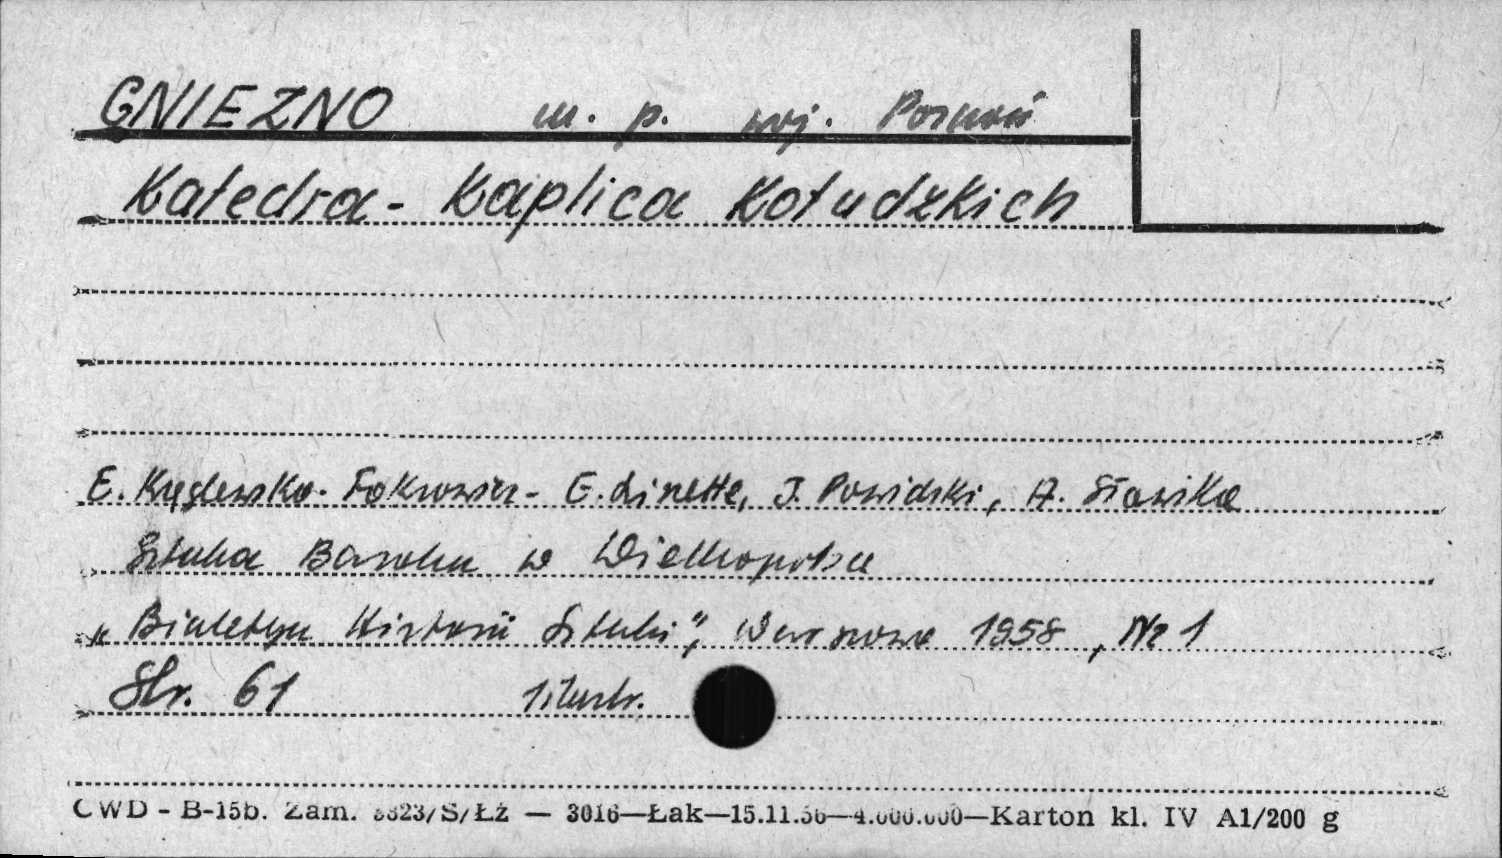 GNIEZNO m. p. woj. Poznań
Katedra - Kaplica Kołudzkich
E. Kręglewska-Fokrowicz - E. Linette, J. Powidzki, A. Sławska
Sztuka Baroku w Wielkopolsce
„Biuletyn Historii Sztuki”, Warszawa 1958, Nr 1
Str. 61 1 ilustr.
CWD - B-15b. Zam. 8823/S/Łż — 3016—Łak—15.11.56—4.000.000—Karton kl. IV A1/200 g